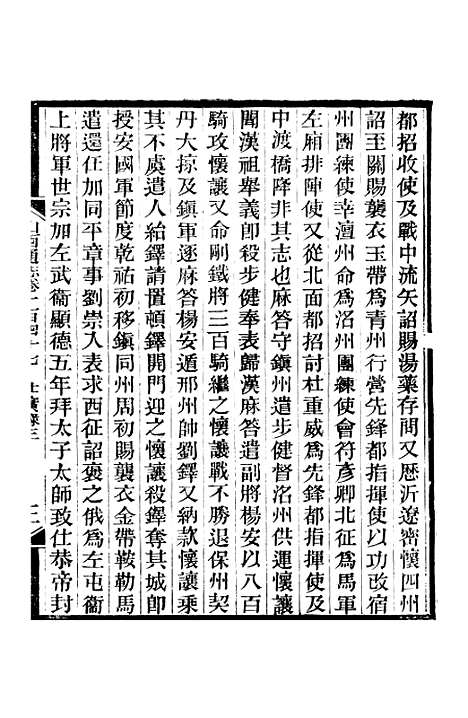 都招收使及戰中流矢詔賜湯藥存問又歷沂遼密懷四州
詔至闕賜襲衣玉帶爲青州行營先鋒都指揮使以功改宿
州團練使幸澶州命爲洺州團練使會符彥卿北征爲馬軍
左廂排陣使又從北面都招討杜重威爲先鋒都指揮使及
中渡橋降非其志也麻荅守鎮州遣步健督洺州供運懷讓
聞漢祖舉義卽殺步健奉表歸漢麻荅遣副將楊安以八百
騎攻懷讓又命剛鐵將三百騎繼之懷讓戰不勝退保州契
丹大掠及鎮軍逐麻荅楊安遁邢州帥劉鐸又納款懷讓乘
其不虞遣人給鐸請置頓鐸開門迎之懷讓殺鐸奪其城卽
授安國軍節度乾祐初移鎮同州周初賜襲衣金帶鞍勒馬
遣還任加同平章事劉崇入表求西征詔褒之俄爲左屯衞
上將軍世宗加左武衞顯德五年拜太子太師致仕恭帝封
山西通志卷一百四十七 仕實錄三